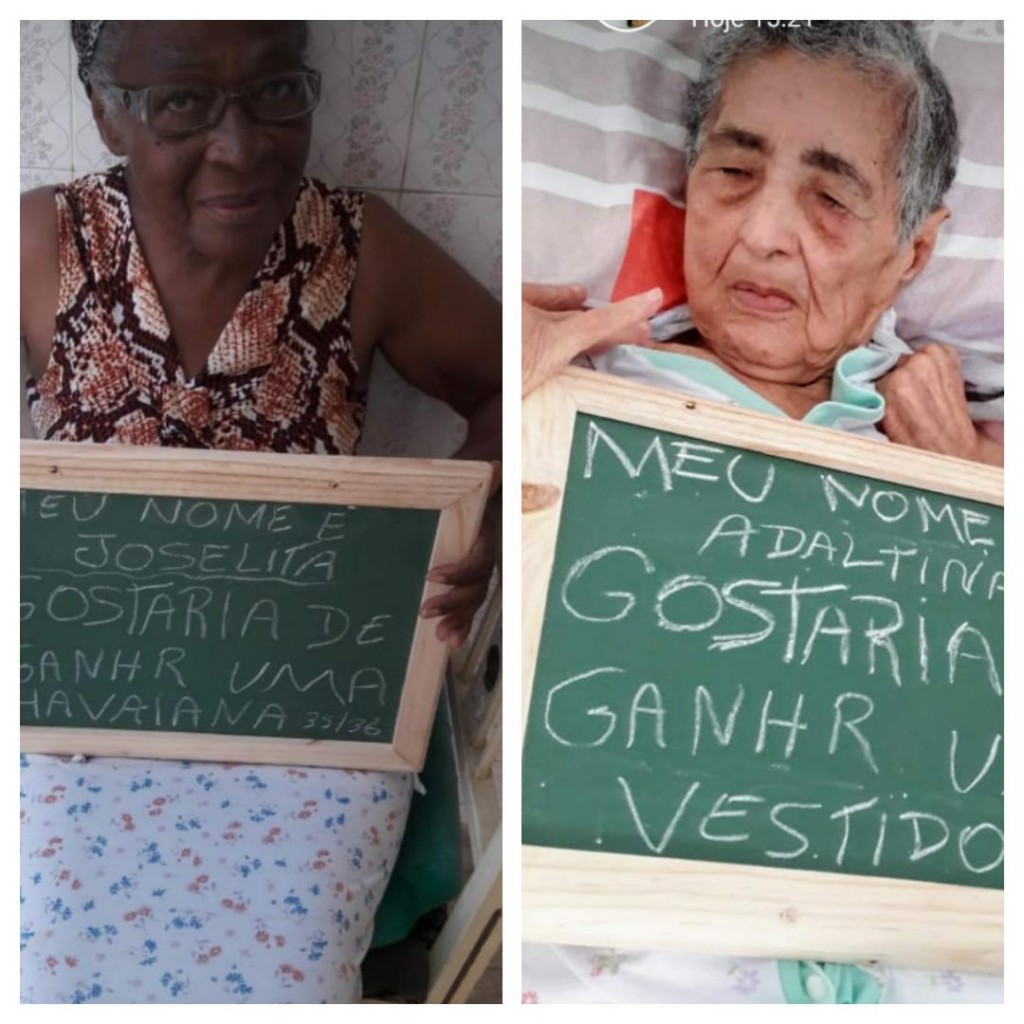 MEU NOME É
JOSELITA
GOSTARIA DE
GANHR UMA
HAVAIANA 35/36
Hoje 15:21
MEU NOME
ADALTINA
GOSTARIA
GANHR U
VESTIDO